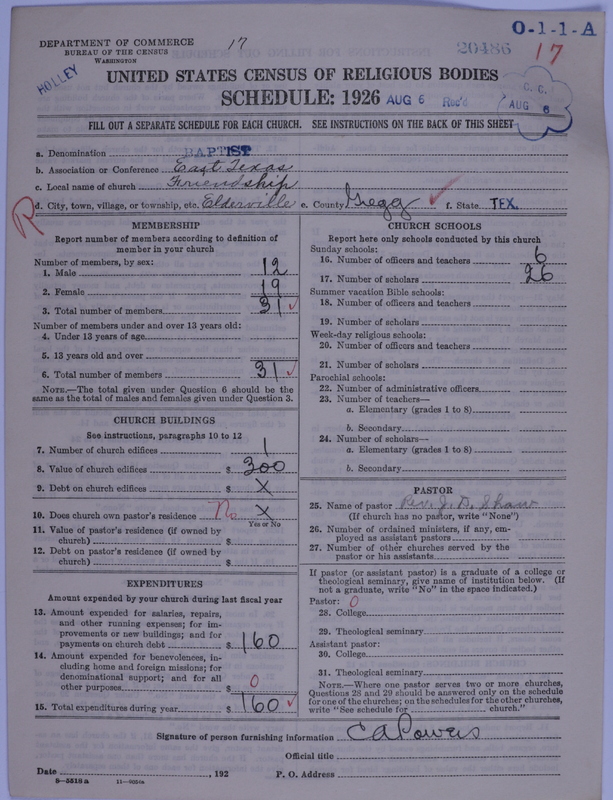 O-1-1-A
DEPARTMENT OF COMMERCE
BUREAU OF THE CENSUS
WASHINGTON
17
20486
17
HOLLEY
UNITED STATES CENSUS OF RELIGIOUS BODIES
SCHEDULE: 1926 AUG 6 Rec'd
C. C.
AUG 6
FILL OUT A SEPARATE SCHEDULE FOR EACH CHURCH. SEE INSTRUCTIONS ON THE BACK OF THIS SHEET
a. Denomination BAPTIST
b. Association or Conference East Texas
c. Local name of church Friendship
R
d. City, town, village, or township, etc. Elderville e. County Gregg f. State TEX.
MEMBERSHIP
Report number of members according to definition of
member in your church
Number of members, by sex:
1. Male 12
2. Female 19
3. Total number of members 31
Number of members under and over 13 years old:
4. Under 13 years of age
5. 13 years old and over
6. Total number of members 31
NOTE.—The total given under Question 6 should be the
same as the total of males and females given under Question 3.
CHURCH BUILDINGS
See instructions, paragraphs 10 to 12
7. Number of church edifices 1
8. Value of church edifices $ 300
9. Debt on church edifices $ X
10. Does church own pastor's residence No X
Yes or No
11. Value of pastor's residence (if owned by
church) $
12. Debt on pastor's residence (if owned by
church) $
EXPENDITURES
Amount expended by your church during last fiscal year
13. Amount expended for salaries, repairs,
and other running expenses; for im-
provements or new buildings; and for
payments on church debt $ 160
14. Amount expended for benevolences, in-
cluding home and foreign missions; for
denominational support; and for all
other purposes $ 0
15. Total expenditures during year $ 160
CHURCH SCHOOLS
Report here only schools conducted by this church
Sunday schools:
16. Number of officers and teachers 6
17. Number of scholars 26
Summer vacation Bible schools:
18. Number of officers and teachers
19. Number of scholars
Week-day religious schools:
20. Number of officers and teachers
21. Number of scholars
Parochial schools:
22. Number of administrative officers
23. Number of teachers—
a. Elementary (grades 1 to 8)
b. Secondary
24. Number of scholars—
a. Elementary (grades 1 to 8)
b. Secondary
PASTOR
25. Name of pastor Rev. J. D. Shaw
(If church has no pastor, write "None")
26. Number of ordained ministers, if any, em-
ployed as assistant pastors
27. Number of other churches served by the
pastor or his assistants
If pastor (or assistant pastor) is a graduate of a college or
theological seminary, give name of institution below. (If
not a graduate, write "No" in the space indicated.)
Pastor: 0
28. College
29. Theological seminary
Assistant pastor:
30. College
31. Theological seminary
NOTE.—Where one pastor serves two or more churches,
Questions 28 and 29 should be answered only on the schedule
for one of the churches; on the schedules for the other churches,
write "See schedule for church."
Signature of person furnishing information C A Powers
Official title
Date , 192 P. O. Address
8-5518a